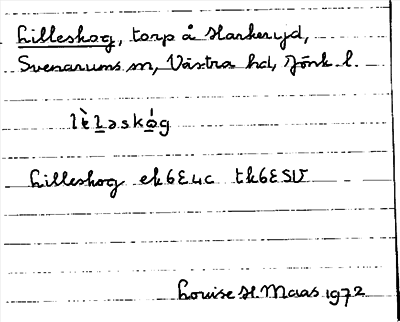 Lilleskog, torp å Harkeryd,
Svenarums sn, Västra hd, Jönk l.
lèl̲əskó̲g
Lilleskog ek6E4c tk6ESV
Louise H. Maas 1972